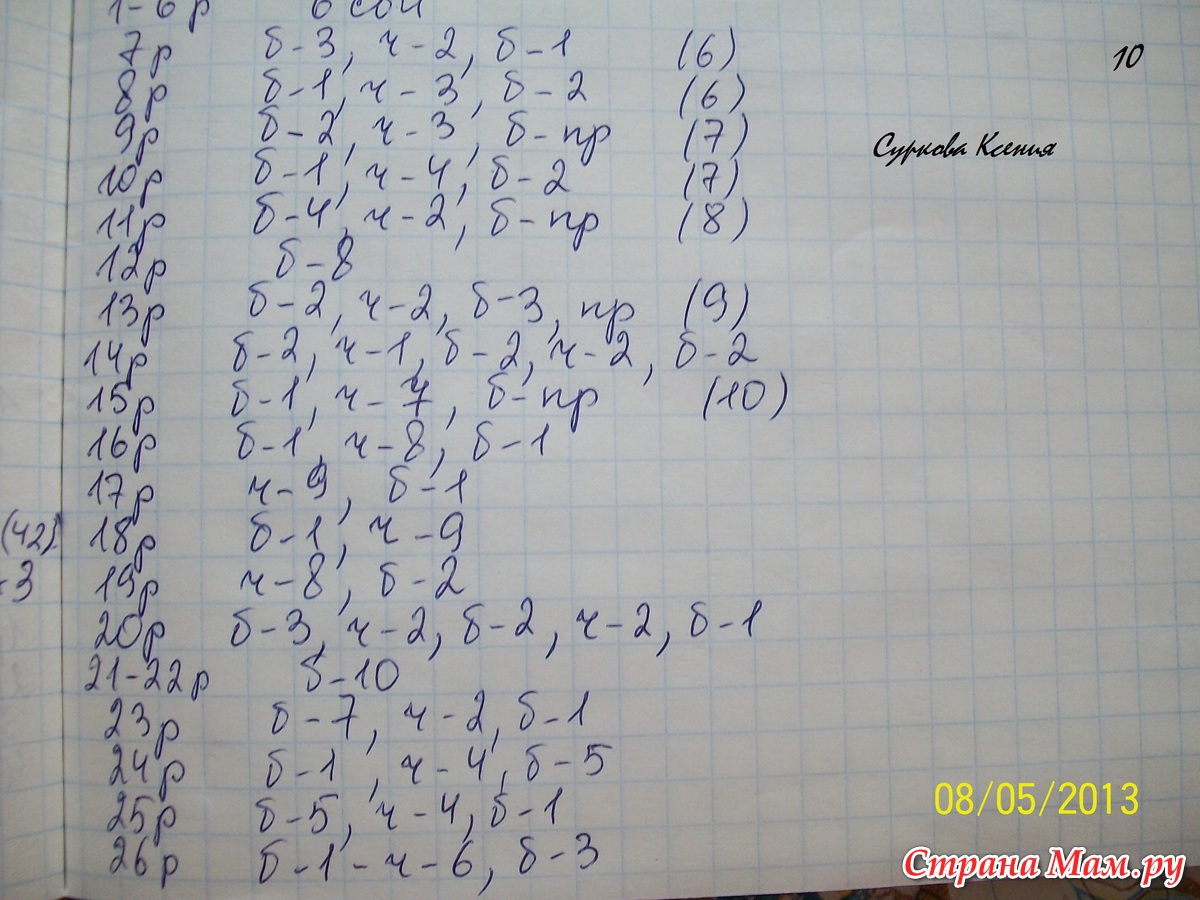 1-6р 6 сбн
7р б-3, ч-2, б-1 (6)
10
8р б-1, ч-3, б-2 (6)
9р б-2, ч-3, б-пр (7)
Суркова Ксения
10р б-1, ч-4, б-2 (7)
11р б-4, ч-2, б-пр (8)
12р б-8
13р б-2, ч-2, б-3, пр (9)
14р б-2, ч-1, б-2, ч-2, б-2
15р б-1, ч-7, б-пр (10)
16р б-1, ч-8, б-1
17р ч-9, б-1
(42) 18р б-1, ч-9
3 19р ч-8, б-2
20р б-3, ч-2, б-2, ч-2, б-1
21-22р б-10
23р б-7, ч-2, б-1
24р б-1, ч-4, б-5
25р б-5, ч-4, б-1
26р б-1-ч-6, б-3
08/05/2013
Страна Мам.ру